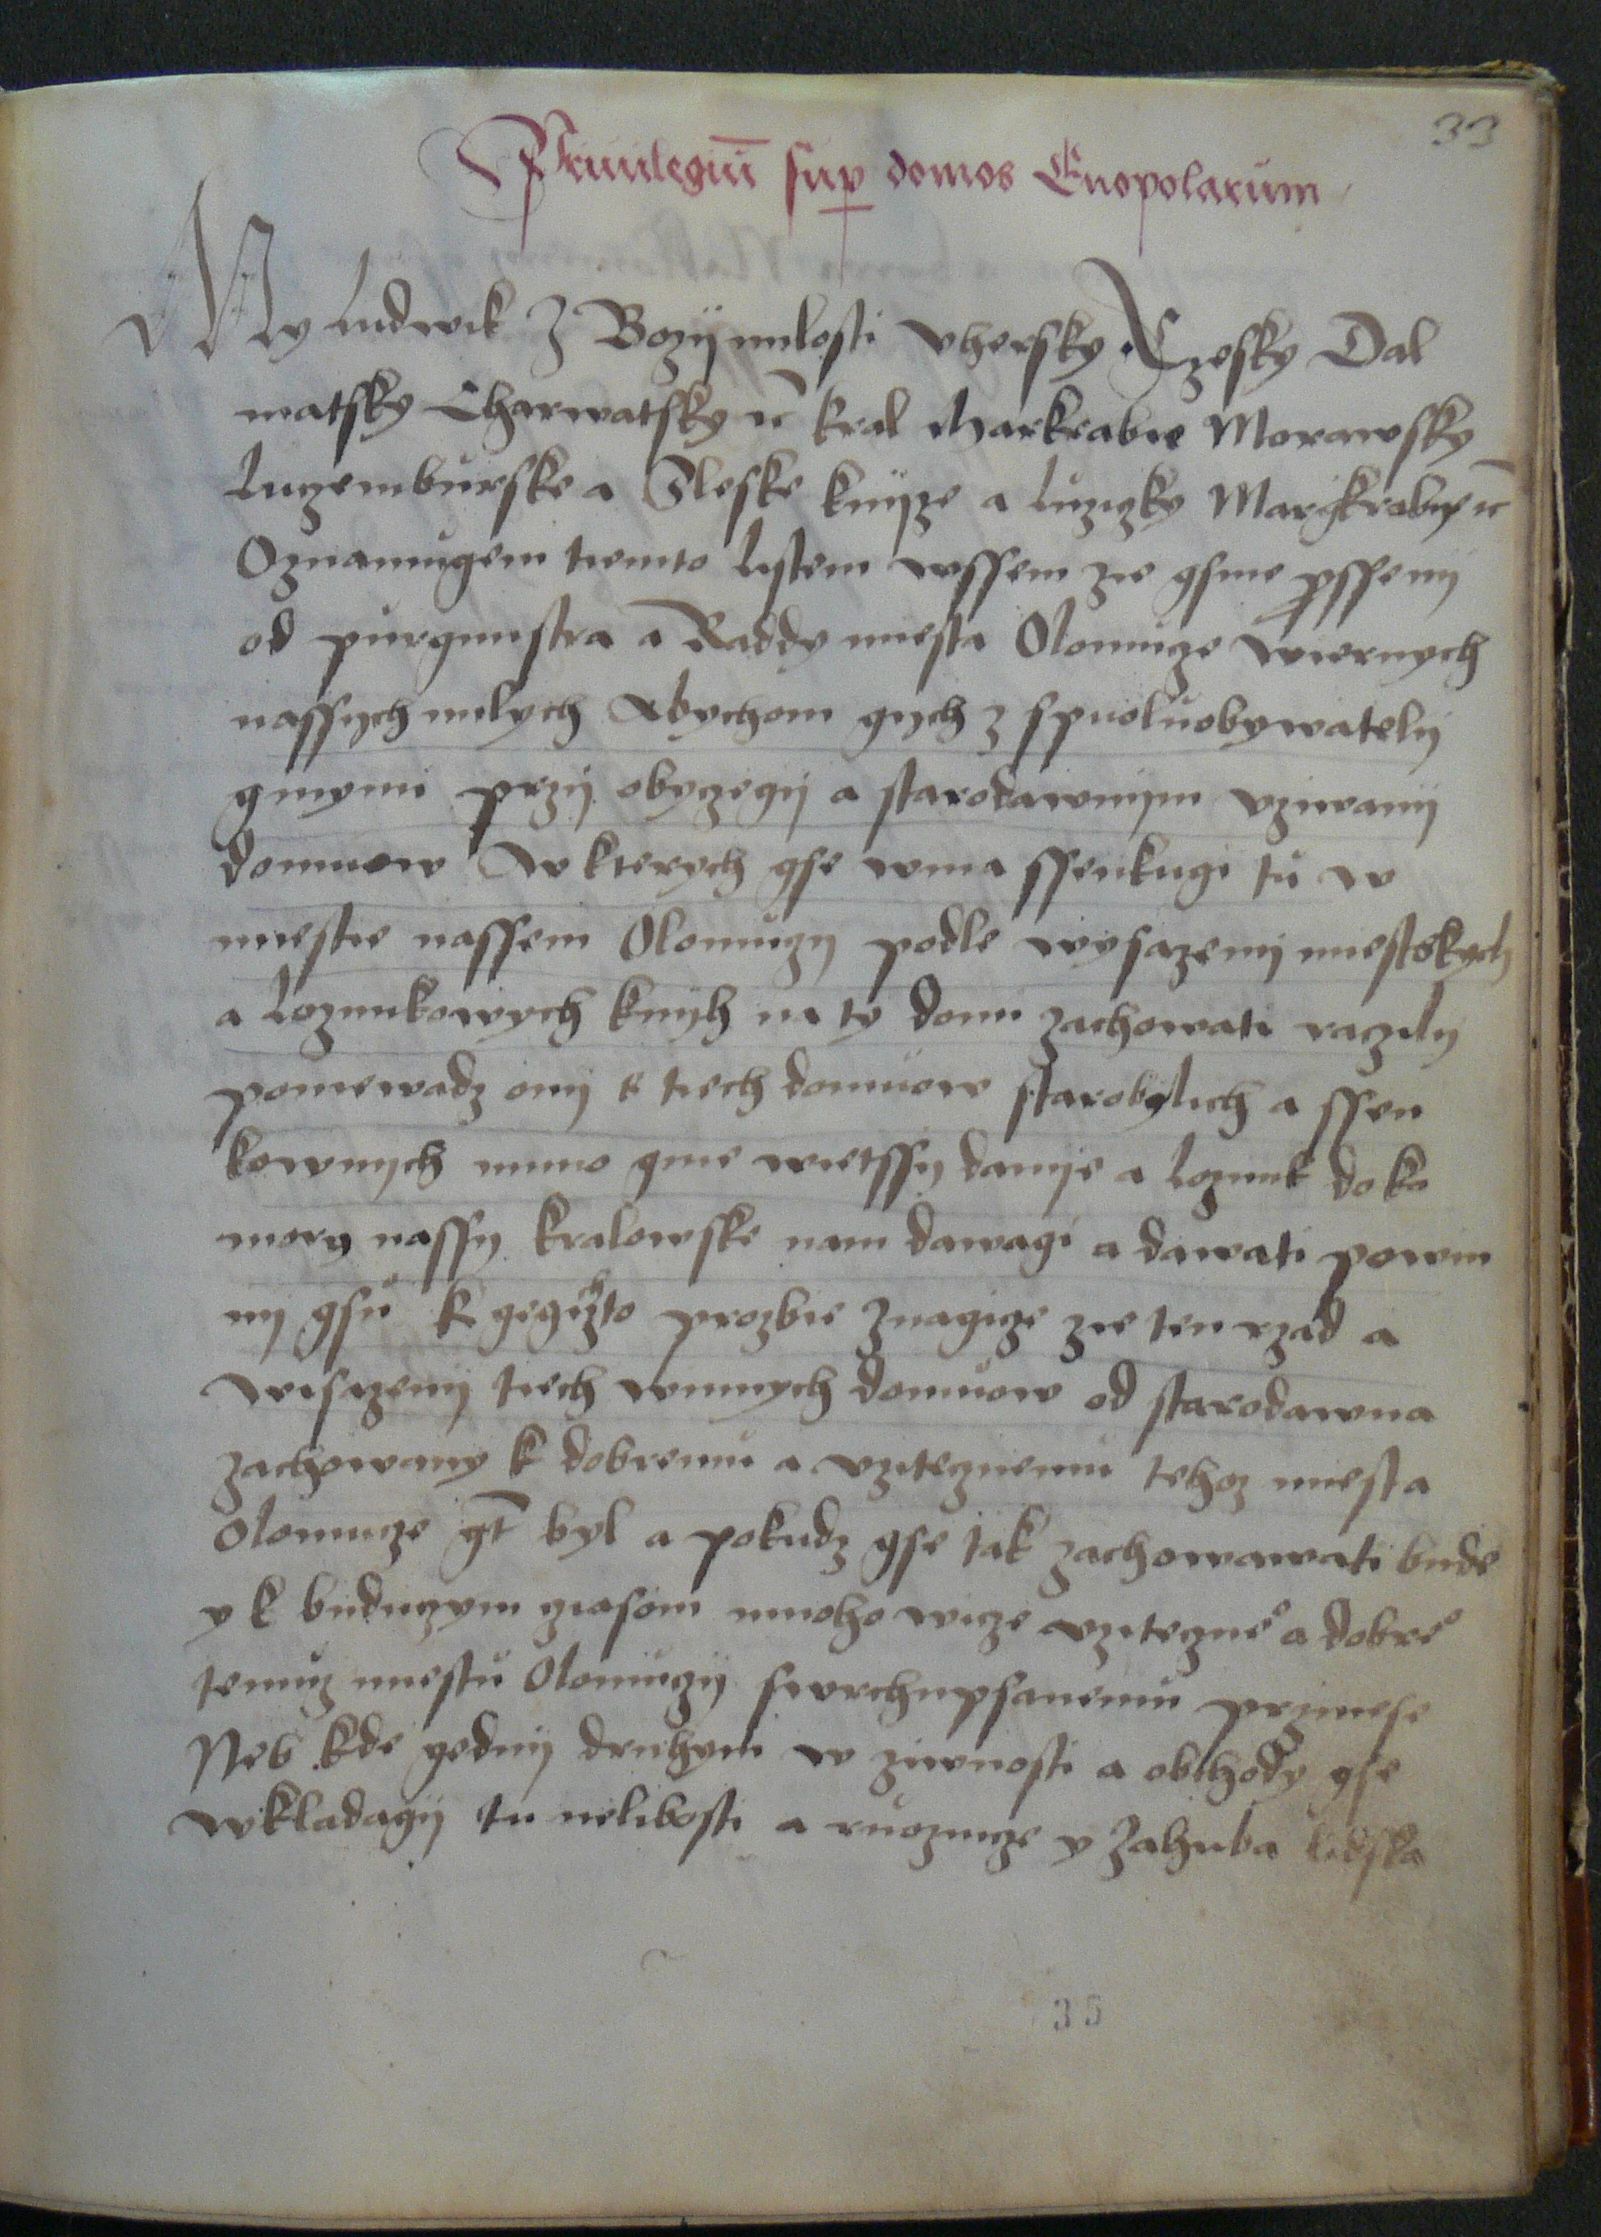 33
Priuilegiū sup domos Enopolarum
My Ludwik Z Bozij milosti vhersky Czesky Dal
matsky Charwatsky ꝛc kral Markrabie Morawsky
Luczemburske a Sleske knijze a Luziczky Margkrabye ꝛc
Oznamugem tiemto listem wssem zie gsme prosseny
od purgmistra a Raddy miesta Olomucze wiernych
nassych milych Abychom gych z spuoluobywately
gmymi przij obyczegij a starodawnijm vziwanij
domuow W kterych gse wina ssenkugi tu w
miestie nassem Olomuczy podle wysazenij miestskych
a Lozunkowych knijh na ty domi zachowati raczily
poniewadz onij z tiech domuow starobylich a ssen
kownych mimo gine wietssy danije a Lozunk do ko
mory nassy kralowske nam dawagi a dawati powin
ni gsu K gegichzto prozbie znagicze zie ten rzad a
wisazenij tiech winnych domuow od starodawna
zachowany k dobremu a vzitecznemu tehoz miesta
Olomucze gt̄ byl a pokudz gse tak zachowawati bude
y k buduczym cziasom mnoho wicze vziteczne a dobre
temuz miestu Olomuczij swrchupsanemu przinese
Neb kde gednij druhym w ziwnosti a obchody gse
wkladagij tu nelibosti a ruoznicze y Zahuba lidska
35